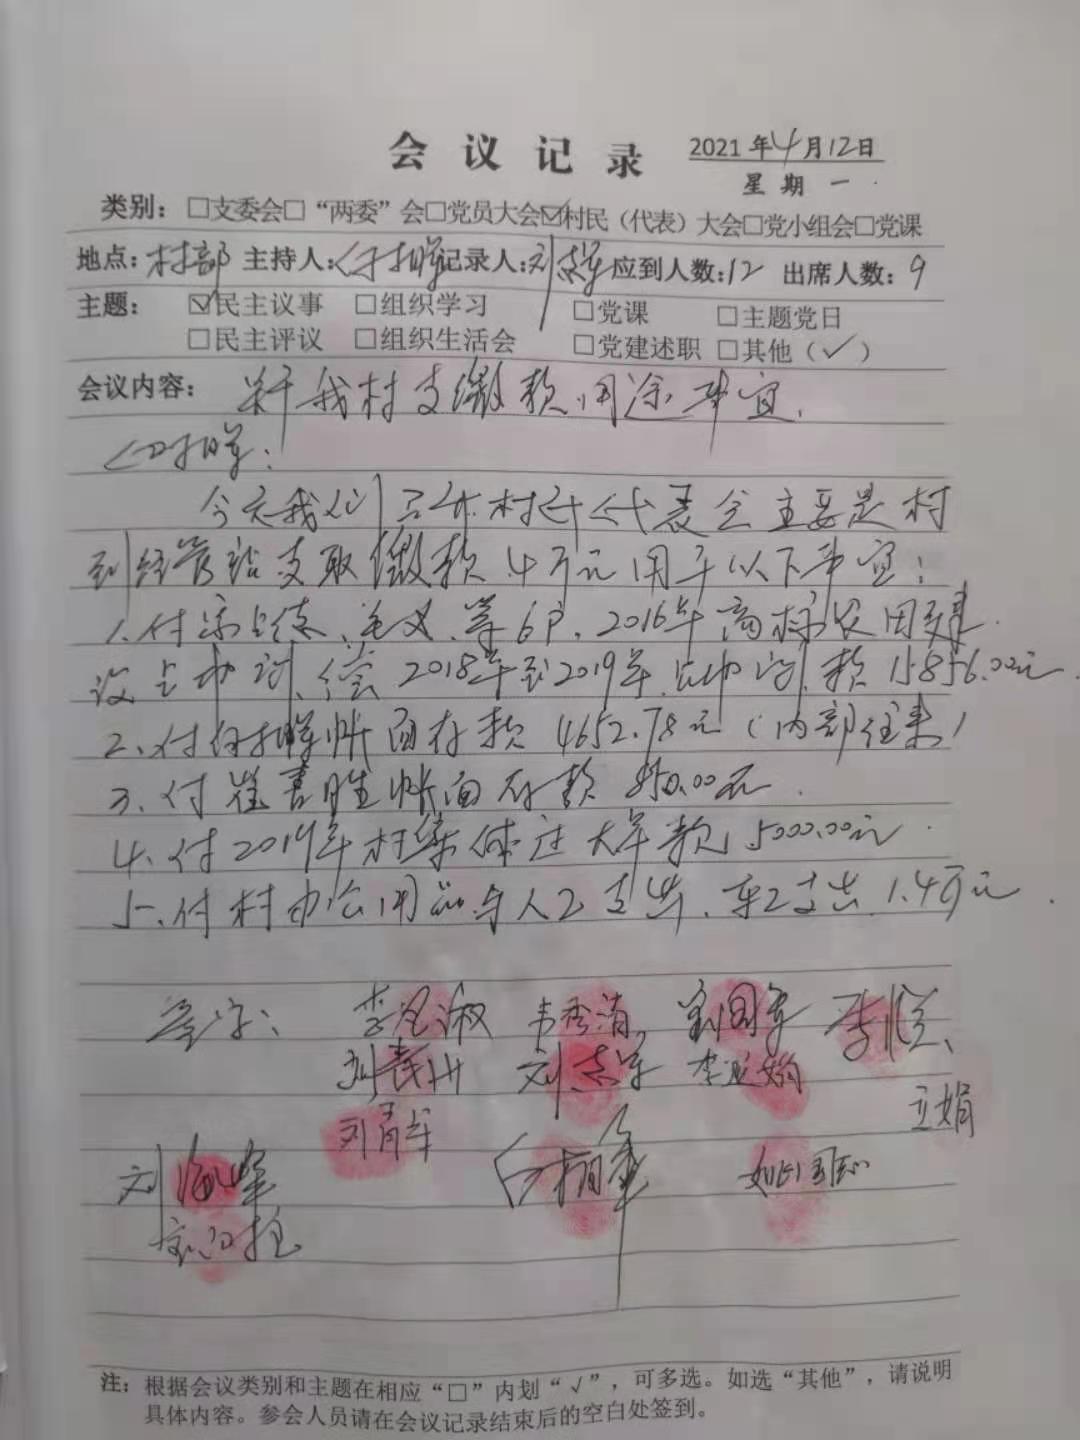 会议记录 2021年4月12日
星期一
类别：□支委会□“两委”会□党员大会☑村民（代表）大会□党小组会□党课
地点：村部 主持人： 记录人：刘志军 应到人数：12 出席人数：9
主题： ☑民主议事 □组织学习 □党课 □主题党日
□民主评议 □组织生活会 □党建述职 □其他（✓）
会议内容： 关于我村支缴款用途事宜.
今天我们召开村民代表会主要是村
到经管站支取缴款4万元用于以下事宜：
1、付 等6户、2016年高标农田建
设占地补偿2018年到2019年 款15856.00元.
2、付白相军帐面存款4652.78元（内部往来）
3、付崔喜胜帐面存款 元.
4、付2019年村集体 款15000.00元.
5、付村办公用品与人工支出、车工支出1.4万元.
签字： 韦秀清 刘国军 李悦
刘志军 李亚娟
立娟
刘青军
刘海峰 白相军
注：根据会议类别和主题在相应“□”内划“√”，可多选。如选“其他”，请说明
具体内容。参会人员请在会议记录结束后的空白处签到。